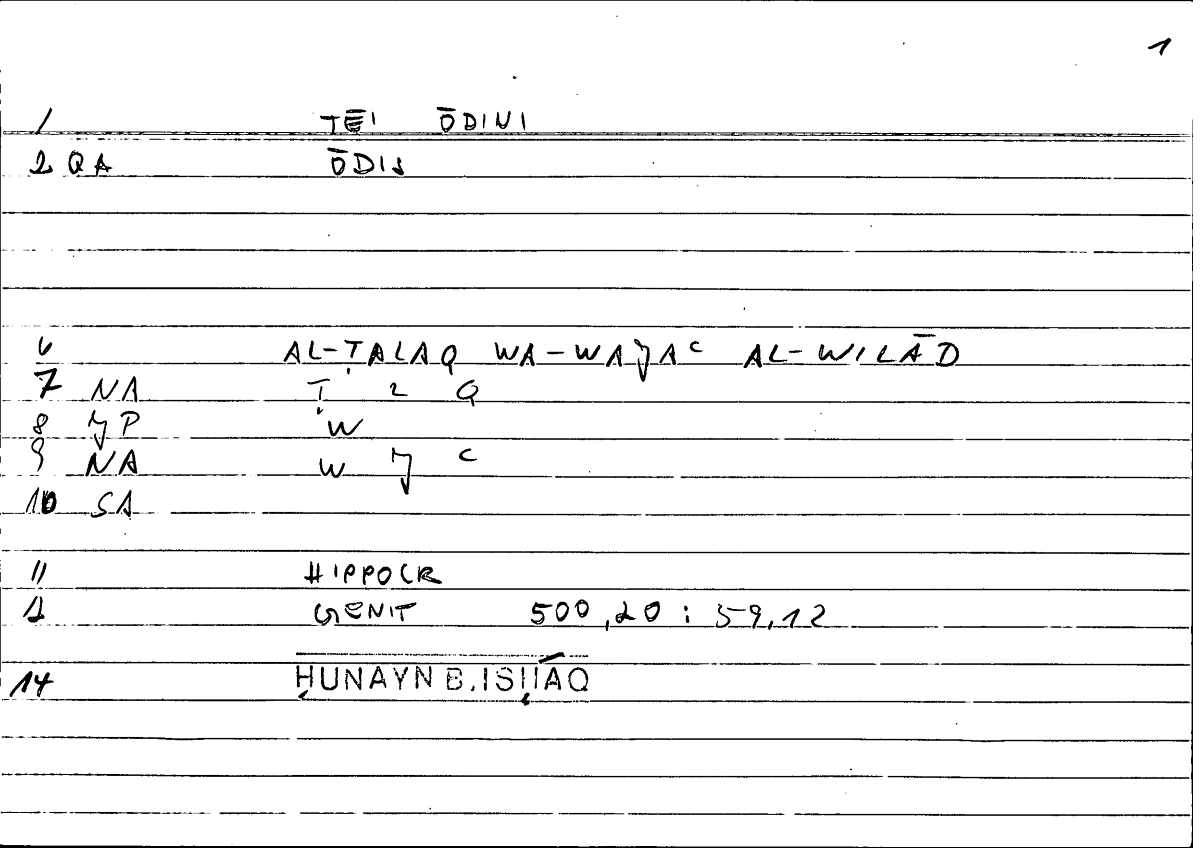 1
1 TĒI ŌDINI
2 QA ŌDIS
6 AL-ṬALAQ WA-WAJAC AL-WILĀD
7 NA Ṭ L Q
8 JP W
9 NA W J C
10 SA
11 HIPPOCR
1 GENIT 500,20 : 59,12
14 ḤUNAYN B. ISḤĀQ